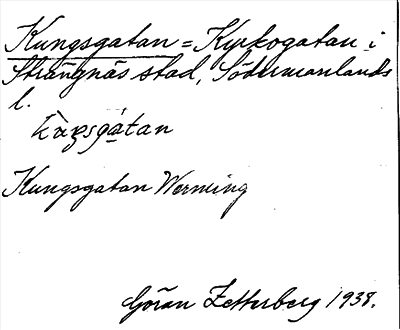 Kungsgatan = Kyrkogatan i
Strängnäs stad, Södermanlands
l.
Kungsgatan Werming
Göran Zetterberg 1938.